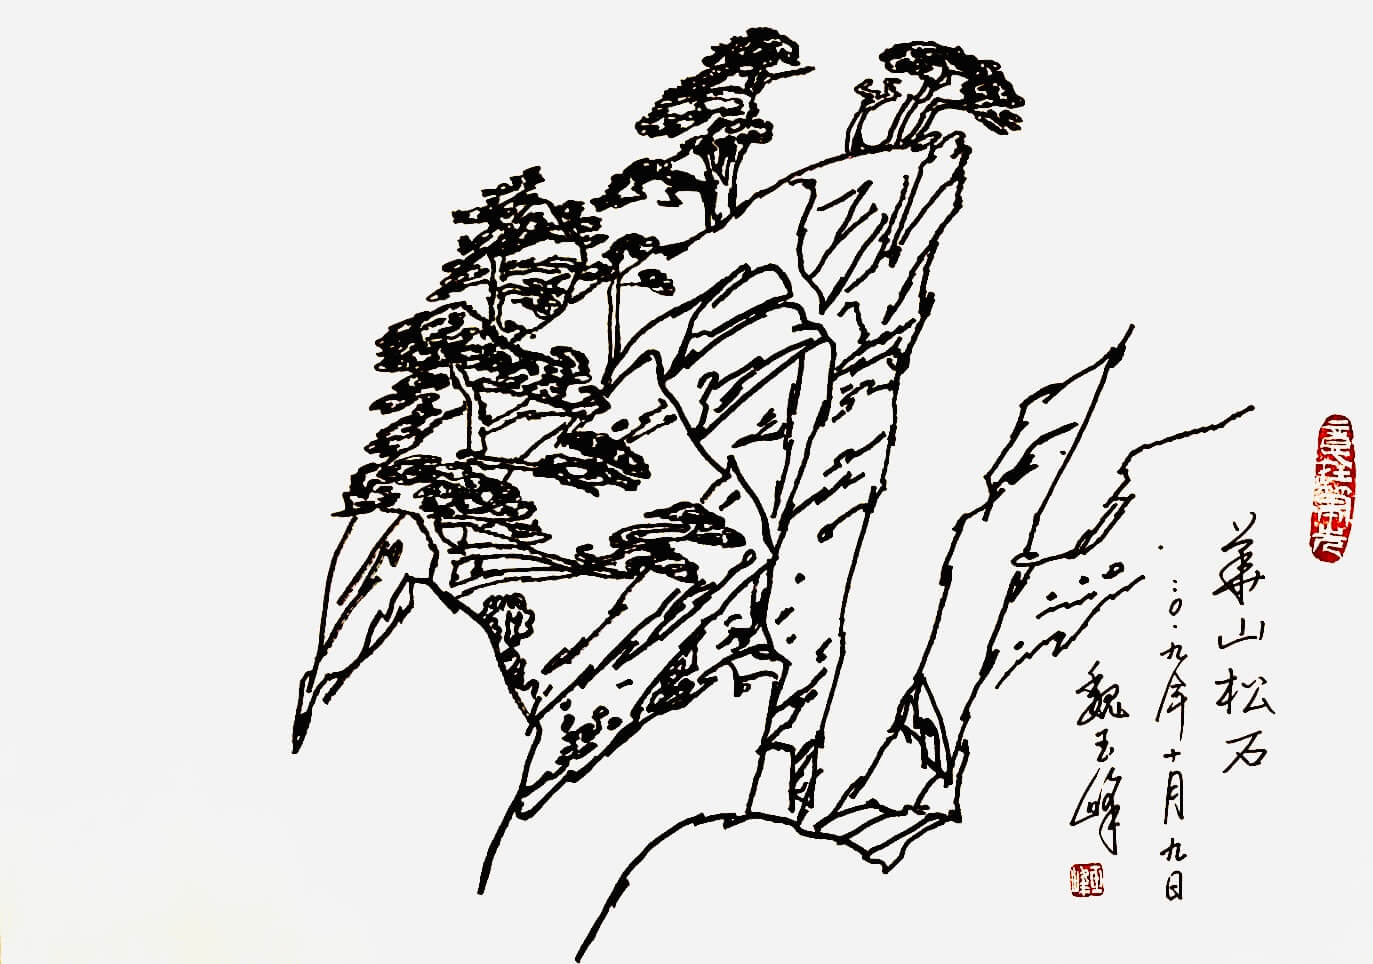 華山松石
二〇一九年十月九日
魏玉峰
玉峰